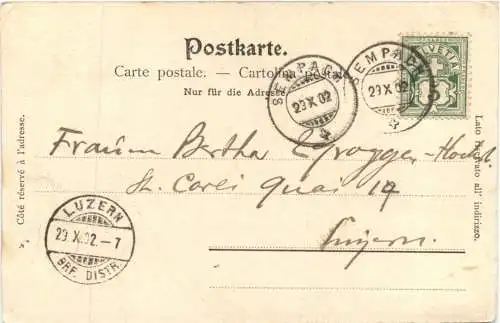 Postkarte.
Carte postale. — Cartolina postale.
Nur für die Adresse.
SEMPACH
29 X 02
SEMPACH
29 X 02
HELVETIA
Côté réservé à l'adresse.
Lato riservato all' indirizzo.
Bertha
St. Carli Quai 19
Luzern.
LUZERN
29 X. 02. – 7
BRF. DISTR.